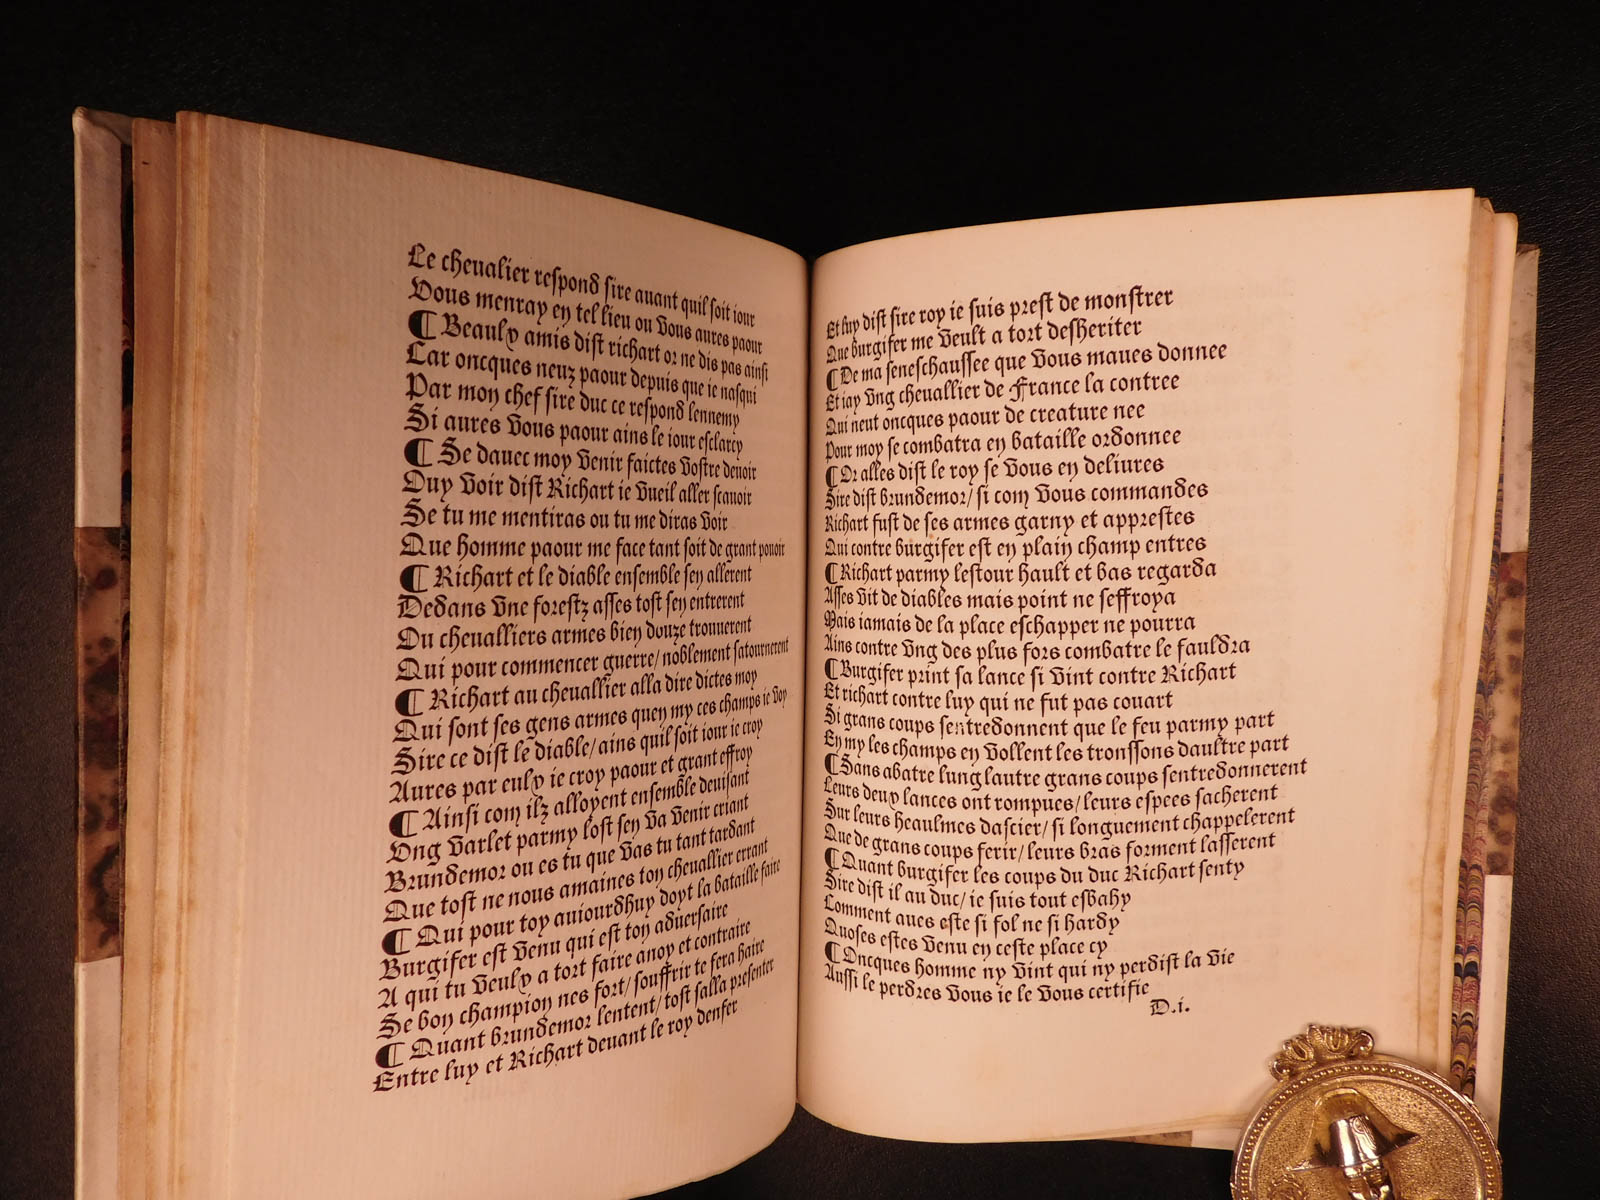 Le cheualier respond sire auant quil soit iour
Vous menray en tel lieu ou vous aures paour
¶ Beaulx amis dist richart or ne dis pas ainsi
Car oncques neuz paour depuis que ie nasqui
Par mon chef sire duc ce respond lennemy
Si aures vous paour ains le iour esclarcy
¶ Se dauec moy venir faictes vostre deuoir
Ouy voir dist Richart ie vueil aller scauoir
Se tu me mentiras ou tu me diras voir
Que homme paour me face tant soit de grant pouoir
¶ Richart et le diable ensemble sen allerent
Dedans vne forestz asses tost sen entrerent
Ou cheualliers armes bien douze trouuerent
Qui pour commencer guerre/ noblement satournerent
¶ Richart au cheuallier alla dire dictes moy
Qui sont ses gens armes quen my ces champs ie voy
Sire ce dist le diable/ ains quil soit iour ie croy
Aures par eulx ie croy paour et grant effroy
¶ Ainsi com ilz alloyent ensemble deuisant
Vng varlet parmy lost sen va venir criant
Brundemor ou es tu que vas tu tant tardant
Que tost ne nous amaines ton cheuallier errant
¶ Qui pour toy auiourdhuy doyt la bataille faire
Burgifer est venu qui est ton aduersaire
A qui tu veulx a tort faire anoy et contraire
Se bon champion nes fort/ souffrir te fera haire
¶ Quant brundemor lentent/ tost salla presenter
Entre luy et Richart deuant le roy denfer
Et luy dist sire roy ie suis prest de monstrer
Que burgifer me veult a tort desheriter
¶ De ma seneschaussee que vous maues donnee
Et iay vng cheuallier de France la contree
Qui neut oncques paour de creature nee
Pour moy se combatra en bataille ordonnee
¶ Or alles dist le roy se vous en deliures
Sire dist brundemor/ si com vous commandes
Richart fust de ses armes garny et apprestes
Qui contre burgifer est en plain champ entres
¶ Richart parmy lestour hault et bas regarda
Asses vit de diables mais point ne seffroya
Mais iamais de la place eschapper ne pourra
Ains contre vng des plus fors combatre le fauldra
¶ Burgifer print sa lance si vint contre Richart
Et richart contre luy qui ne fut pas couart
Si grans coups sentredonnent que le feu parmy part
En my les champs en vollent les tronssons daultre part
¶ Sans abatre lung lautre grans coups sentredonnerent
Leurs deux lances ont rompues/ leurs espees sacherent
Sur leurs heaulmes dascier/ si longuement chappelerent
Que de grans coups ferir/ leurs bras forment lasserent
¶ Quant burgifer les coups du duc Richart senty
Sire dist il au duc/ ie suis tout esbahy
Comment aues este si fol ne si hardy
Quoses estes venu en ceste place cy
¶ Oncques homme ny vint qui ny perdist la vie
Aussi le perdres vous ie le vous certifie
D.i.